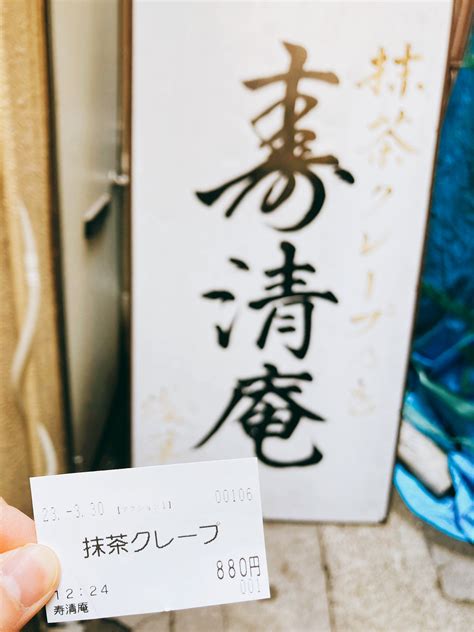 寿清庵
抹茶クレープ
23.-3.30
00106
抹茶クレープ
880円
001
12:24
寿清庵